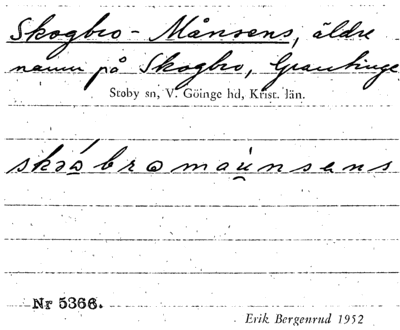 Skogbro - Månsens, äldre
namn på Skogbro, Grantinge
Stoby sn, V. Göinge hd, Krist. län.
Nr 5366.
Erik Bergenrud 1952